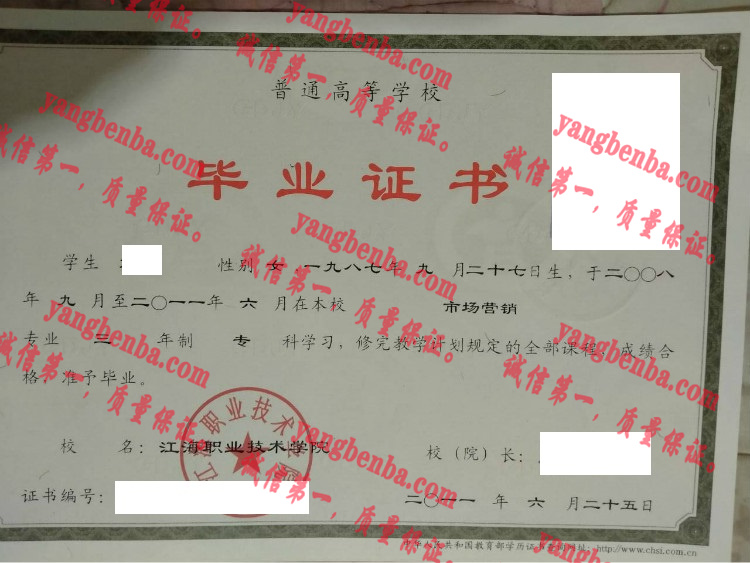 普通高等学校
毕业证书
学生 性别 女,一九八七年 九 月二十七日生,于二〇〇八
年 九 月至二〇一一年 六 月在本校 市场营销
专业 三 年制 专 科学习,修完教学计划规定的全部课程,成绩合
格,准予毕业。
校 名:江海职业技术学院
校(院)长:
证书编号:
二〇一一 年 六 月二十五日
中华人民共和国教育部学历证书查询网址:http://www.chsi.com.cn
江海职业技术学院
yangbenba.com
诚信第一,质量保证。
yangbenba.com
诚信第一,质量保证。
yangbenba.com
诚信第一,质量保证。
yangbenba.com
诚信第一,质量保证。
yangbenba.com
诚信第一,质量保证。
yangbenba.com
诚信第一,质量保证。
yangbenba.com
诚信第一,质量保证。
yangbenba.com
诚信第一,质量保证。